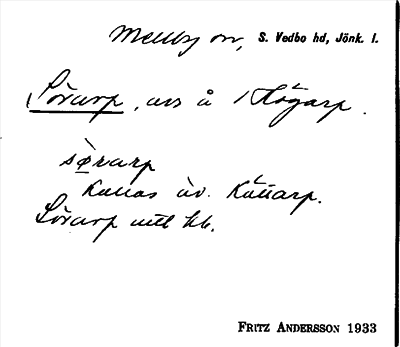 Mellby sn, S. Vedbo hd, Jönk. l.
Sörarp, avs å /Högarp.
sɵ̀rarp
Kallas äv. Kättarp.
Sörarp intl kb.
FRITZ ANDERSSON 1933